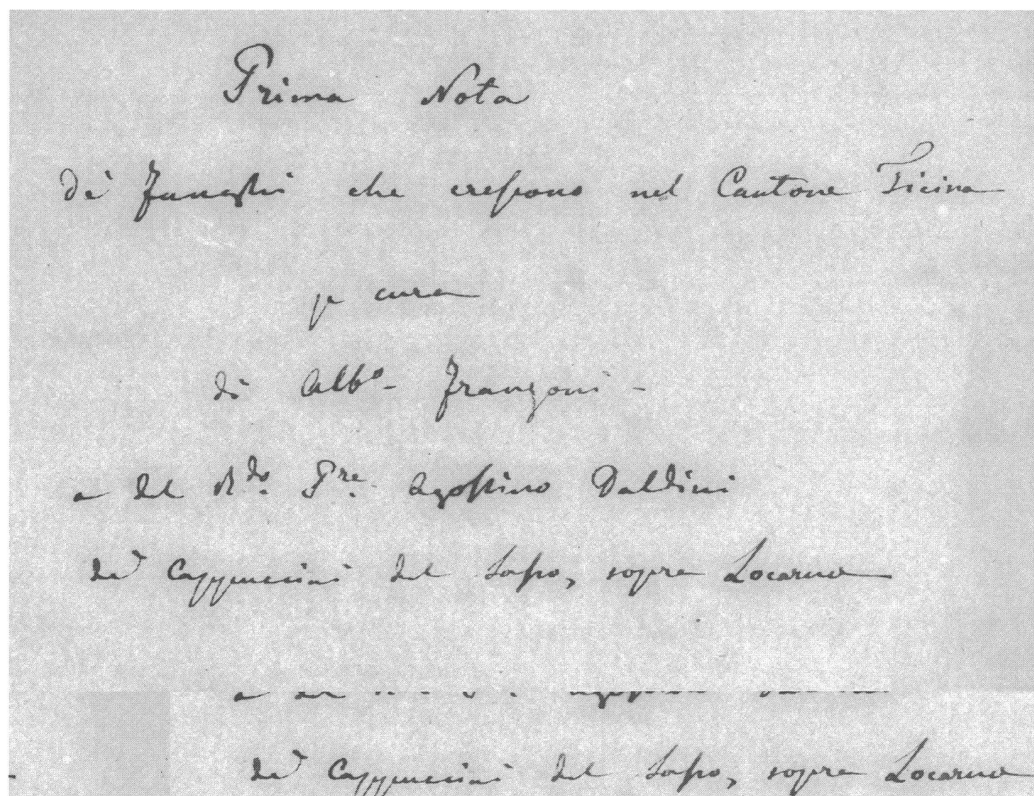 Prima Nota
de' Funghi che crescono nel Cantone Ticino
p cura
di Alb.o Franzoni
e del R.do P.re Agostino Daldini
de' Cappuccini del Sasso, sopra Locarno
de' Cappuccini del Sasso, sopra Locarno